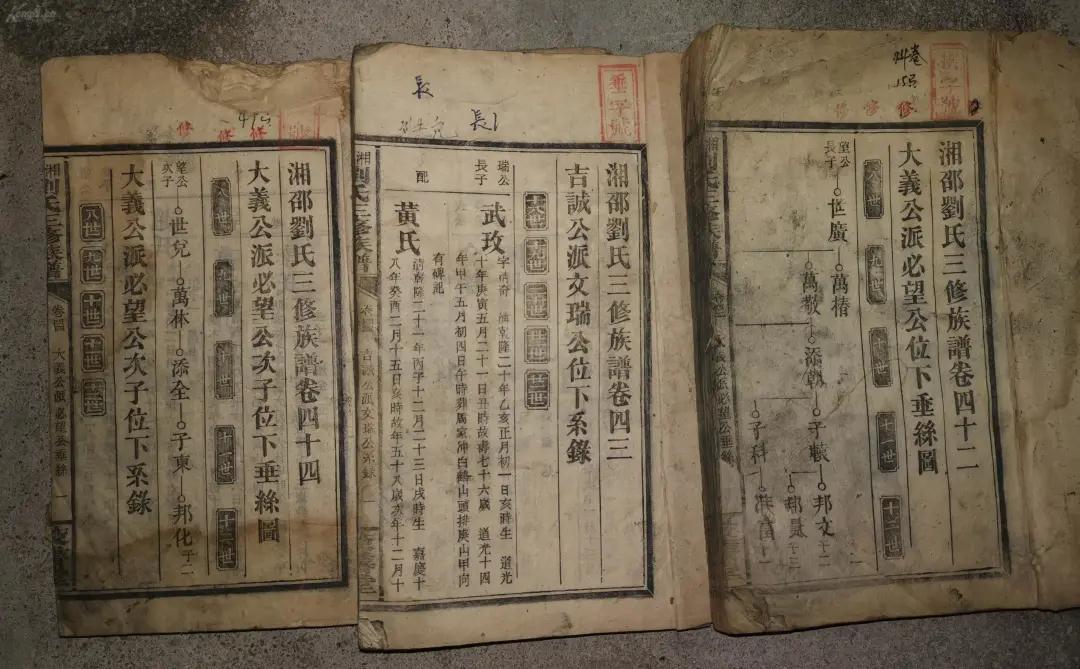 湘邵劉氏三修族譜卷四十二
大義公派必望公位下垂絲圖
八世 九世 十世 十一世 十二世
望公長子
世廣 萬椿
萬敬 添朝 子載 邦文 十二
子科
湘邵劉氏三修族譜卷四三
吉誠公派文瑞公位下系錄
十八世 十九世 二十世 廿一世 廿二世
瑞公長子
武玫
字清奇 清乾隆二十年乙亥正月初一日亥時生 道光
十年庚寅五月二十一日丑時故壽七十六歲 道光十四
年甲午五月初四日午時葬周家沖白鶴山頭排庚山甲向
有碑記
配
黃氏
清乾隆二十一年丙子十二月二十三日戌時生 嘉慶十
八年癸酉二月十五日亥時故年五十八歲次年十二月十
吉誠公派文瑞公系錄
長
長
垂字號
湘邵劉氏三修族譜卷四十四
大義公派必望公次子位下垂絲圖
八世 九世 十世 十一世 十二世
望公次子
世兒 萬林 添全 子東 邦化 子二
大義公派必望公次子位下系錄
八世 九世 十世 十一世 十二世
湘劉氏三修族譜
卷四四
大義公派必望公垂絲
一
修 修 修